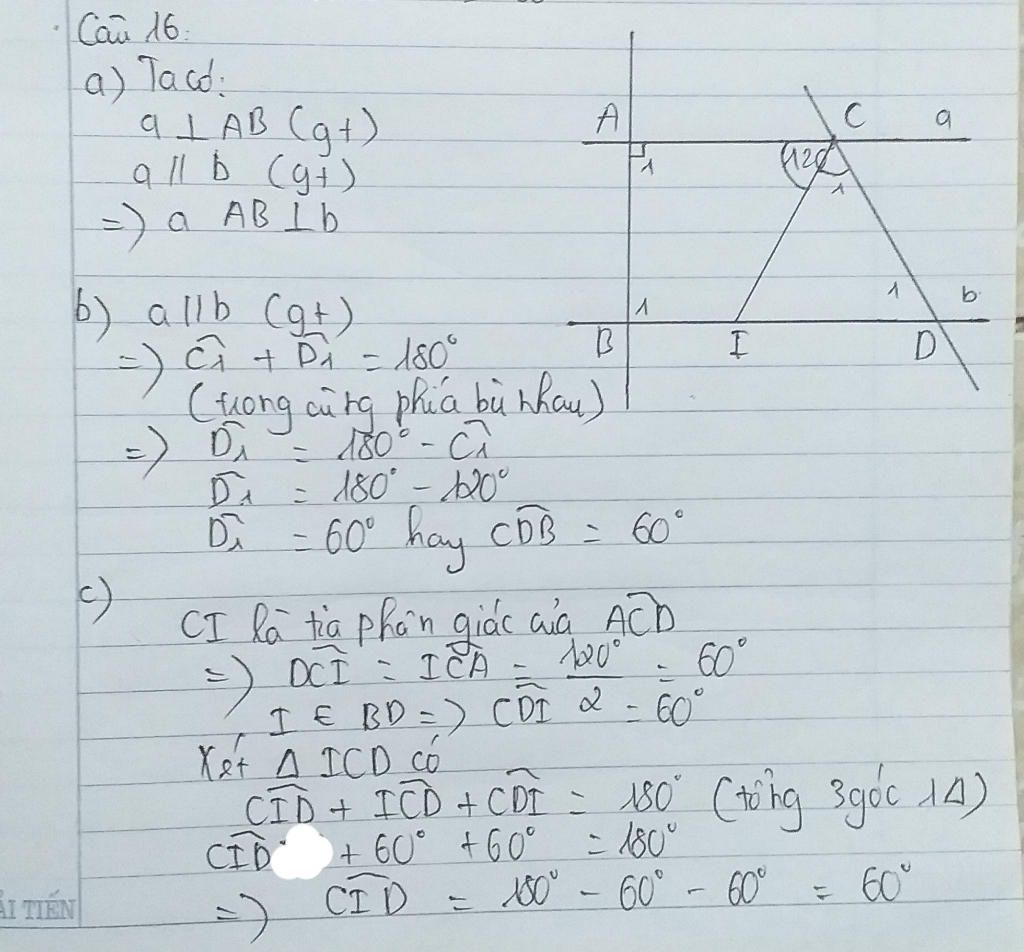 Câu 16:
a) Ta có:
a ⊥ AB (gt)
a // b (gt)
=> a AB ⊥ b
A
C
a
1
120
1
1
1
b
B
I
D
b) a // b (gt)
=> Ĉ₁ + D̂₁ = 180°
(trong cùng phía bù nhau)
=> D̂₁ = 180° - Ĉ₁
D̂₁ = 180° - 120°
D̂₁ = 60° hay CD̂B = 60°
c)
CI là tia phân giác của AĈD
=> DĈI = IĈA = 120°/2 = 60°
I ∈ BD => CD̂I = 60°
Xét Δ ICD có
CÎD + IĈD + CD̂I = 180° (tổng 3 góc 1Δ)
CÎD + 60° + 60° = 180°
=> CÎD = 180° - 60° - 60° = 60°
ẢI TIẾN